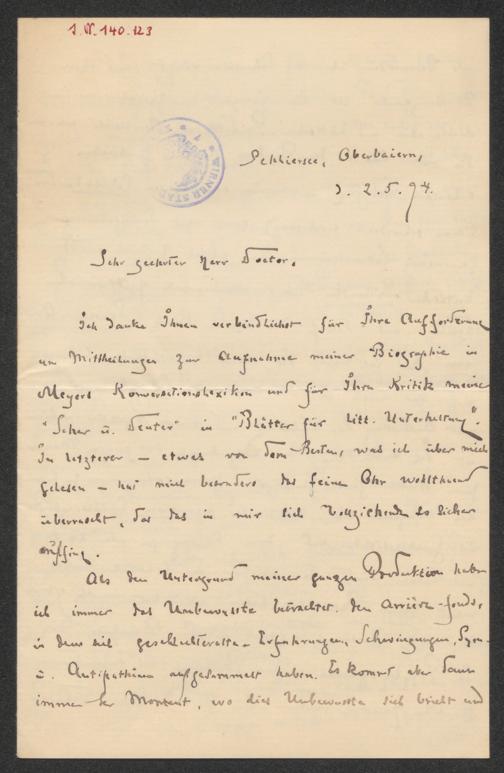 J.N. 140.123
WIENER STADT
Schliersee, Oberbaiern,
d. 2.5.94.
Sehr geehrter Herr Doctor,
Ich danke Ihnen verbindlichst für Ihre Aufforderung
um Mittheilungen zur Aufnahme meiner Biographie in
Meyers Konversationslexikon und für Ihre Kritik meiner
"Seher u. Deuter" in "Blätter für litt. Unterhaltung".
In letzterer – etwas von dem Besten, was ich über mich
gelesen – hat mich besonders das feine Ohr wohlthuend
überrascht, das das in mir sich Vollziehende so sicher
auffing.
Als den Untergrund meiner ganzen Produktion habe
ich immer das Unbewusste betrachtet, den Arrière-fonds,
in dem sich geschlechteralte Erfahrungen, Schwingungen, Sym-
u. Antipathien aufgesammelt haben. Es kommt aber dann
immer der Moment, wo dies Unbewusste sich bricht und